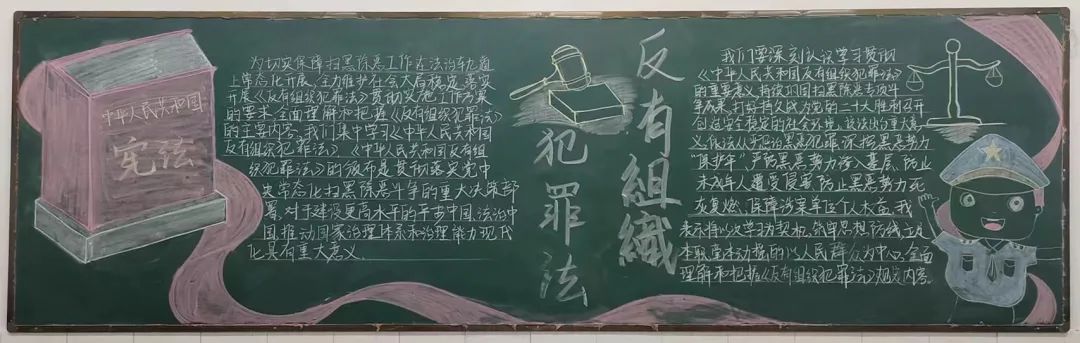 中华人民共和国
宪法
为切实保障扫黑除恶工作在法治轨道
上常态化开展,全力维护社会大局稳定,落实
开展《反有组织犯罪法》贯彻实施工作方案
的要求,全面理解和把握《反有组织犯罪法》
的主要内容,我们集中学习《中华人民共和国
反有组织犯罪法》《中华人民共和国反有组
织犯罪法》的颁布是贯彻落实党中
央常态化扫黑除恶斗争的重大决策部
署,对于建设更高水平的平安中国、法治中
国,推动国家治理体系和治理能力现代
化具有重大意义.
反有组織
犯罪法
我们要深刻认识学习贯彻
《中华人民共和国反有组织犯罪法》
的重要意义,持续巩固扫黑除恶专项斗
争成果,打好持久战,为党的二十大胜利召开
创造安全稳定的社会环境,该法出台重大意
义,依法从严惩治黑恶犯罪,深挖黑恶势力
“保护伞”,严防黑恶势力侵入基层,防止
未成年人遭受侵害,防止黑恶势力死
灰复燃,保障涉案单位个人权益,我
表示将以次学习为契机,筑牢思想防线,立足
本职
以人民群众为中心,全面
理解和把握《反有组织犯罪法》规定内容。